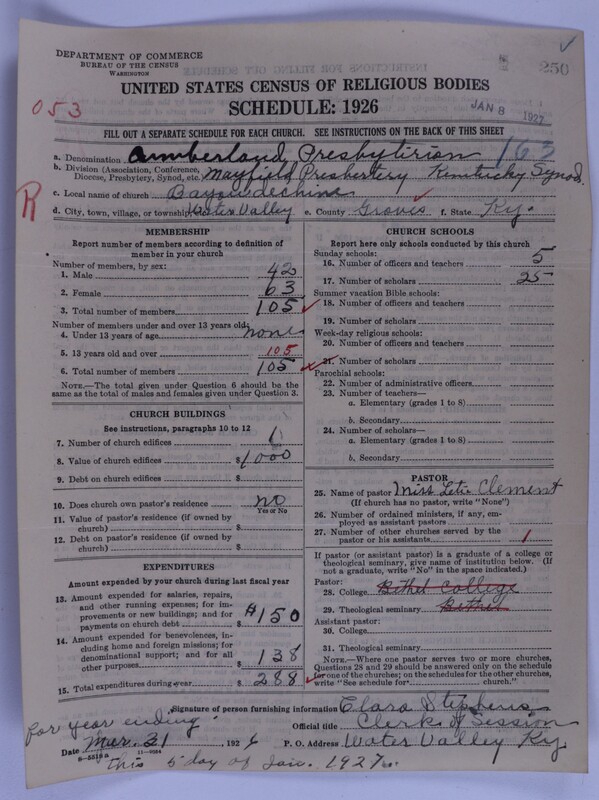 DEPARTMENT OF COMMERCE
BUREAU OF THE CENSUS
WASHINGTON
250
UNITED STATES CENSUS OF RELIGIOUS BODIES
SCHEDULE: 1926
053
JAN 8 1927
FILL OUT A SEPARATE SCHEDULE FOR EACH CHURCH. SEE INSTRUCTIONS ON THE BACK OF THIS SHEET
163
a. Denomination Cumberland Presbytirian
b. Division (Association, Conference, Diocese, Presbytery, Synod, etc.) Mayfield Presbertery Kentucky Synod.
R
c. Local name of church Bayoudechine
d. City, town, village, or township Water Valley e. County Graves f. State Ky.
MEMBERSHIP
Report number of members according to definition of member in your church
Number of members, by sex:
1. Male 42
2. Female 63
3. Total number of members 105
Number of members under and over 13 years old:
4. Under 13 years of age none
5. 13 years old and over 105
6. Total number of members 105
NOTE.—The total given under Question 6 should be the same as the total of males and females given under Question 3.
CHURCH BUILDINGS
See instructions, paragraphs 10 to 12
7. Number of church edifices 1
8. Value of church edifices $1000
9. Debt on church edifices $
10. Does church own pastor's residence no
Yes or No
11. Value of pastor's residence (if owned by church) $
12. Debt on pastor's residence (if owned by church) $
EXPENDITURES
Amount expended by your church during last fiscal year
13. Amount expended for salaries, repairs, and other running expenses; for improvements or new buildings; and for payments on church debt $ $150
14. Amount expended for benevolences, including home and foreign missions; for denominational support; and for all other purposes $ 138
15. Total expenditures during year $ 288
CHURCH SCHOOLS
Report here only schools conducted by this church
Sunday schools:
16. Number of officers and teachers 5
17. Number of scholars 25
Summer vacation Bible schools:
18. Number of officers and teachers
19. Number of scholars
Week-day religious schools:
20. Number of officers and teachers
21. Number of scholars
Parochial schools:
22. Number of administrative officers
23. Number of teachers—
a. Elementary (grades 1 to 8)
b. Secondary
24. Number of scholars—
a. Elementary (grades 1 to 8)
b. Secondary
PASTOR
25. Name of pastor Miss Clement
(If church has no pastor, write "None")
26. Number of ordained ministers, if any, employed as assistant pastors
27. Number of other churches served by the pastor or his assistants 1
If pastor (or assistant pastor) is a graduate of a college or theological seminary, give name of institution below. (If not a graduate, write "No" in the space indicated.)
Pastor:
28. College Bethel College
29. Theological seminary Bethel
Assistant pastor:
30. College
31. Theological seminary
NOTE.—Where one pastor serves two or more churches, Questions 28 and 29 should be answered only on the schedule for one of the churches; on the schedules for the other churches, write "See schedule for church."
Signature of person furnishing information Clara Stephens
Official title Clerk of Session
for year ending
Date Mar. 31, 1926 P. O. Address Water Valley Ky
8-5518a 11-9034
this 5 day of Jan. 1927